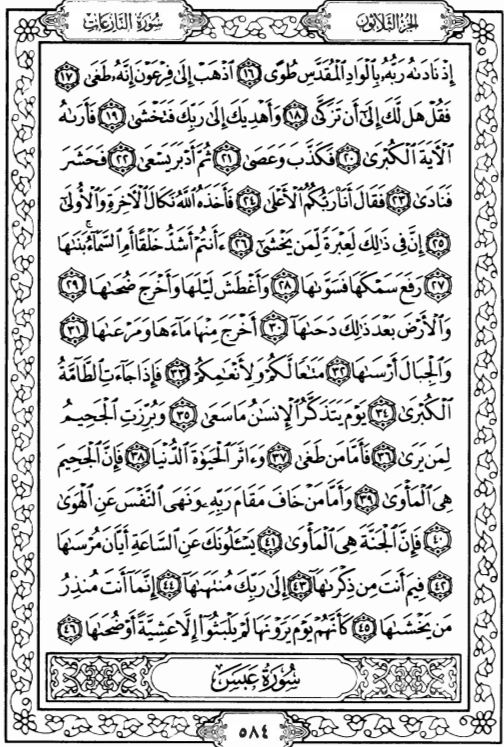 سورة النازعات
الجزء الثلاثون
إِذْ نَادَىٰهُ رَبُّهُۥ بِٱلْوَادِ ٱلْمُقَدَّسِ طُوًى ١٦ ٱذْهَبْ إِلَىٰ فِرْعَوْنَ إِنَّهُۥ طَغَىٰ ١٧
فَقُلْ هَل لَّكَ إِلَىٰٓ أَن تَزَكَّىٰ ١٨ وَأَهْدِيَكَ إِلَىٰ رَبِّكَ فَتَخْشَىٰ ١٩ فَأَرَىٰهُ
ٱلْـَٔايَةَ ٱلْكُبْرَىٰ ٢٠ فَكَذَّبَ وَعَصَىٰ ٢١ ثُمَّ أَدْبَرَ يَسْعَىٰ ٢٢ فَحَشَرَ
فَنَادَىٰ ٢٣ فَقَالَ أَنَا۠ رَبُّكُمُ ٱلْأَعْلَىٰ ٢٤ فَأَخَذَهُ ٱللَّهُ نَكَالَ ٱلْـَٔاخِرَةِ وَٱلْأُولَىٰٓ
٢٥ إِنَّ فِى ذَٰلِكَ لَعِبْرَةً لِّمَن يَخْشَىٰٓ ٢٦ ءَأَنتُمْ أَشَدُّ خَلْقًا أَمِ ٱلسَّمَآءُ ۚ بَنَىٰهَا
٢٧ رَفَعَ سَمْكَهَا فَسَوَّىٰهَا ٢٨ وَأَغْطَشَ لَيْلَهَا وَأَخْرَجَ ضُحَىٰهَا ٢٩
وَٱلْأَرْضَ بَعْدَ ذَٰلِكَ دَحَىٰهَآ ٣٠ أَخْرَجَ مِنْهَا مَآءَهَا وَمَرْعَىٰهَا ٣١
وَٱلْجِبَالَ أَرْسَىٰهَا ٣٢ مَتَـٰعًا لَّكُمْ وَلِأَنْعَـٰمِكُمْ ٣٣ فَإِذَا جَآءَتِ ٱلطَّآمَّةُ
ٱلْكُبْرَىٰ ٣٤ يَوْمَ يَتَذَكَّرُ ٱلْإِنسَـٰنُ مَا سَعَىٰ ٣٥ وَبُرِّزَتِ ٱلْجَحِيمُ
لِمَن يَرَىٰ ٣٦ فَأَمَّا مَن طَغَىٰ ٣٧ وَءَاثَرَ ٱلْحَيَوٰةَ ٱلدُّنْيَا ٣٨ فَإِنَّ ٱلْجَحِيمَ
هِىَ ٱلْمَأْوَىٰ ٣٩ وَأَمَّا مَنْ خَافَ مَقَامَ رَبِّهِۦ وَنَهَى ٱلنَّفْسَ عَنِ ٱلْهَوَىٰ
٤٠ فَإِنَّ ٱلْجَنَّةَ هِىَ ٱلْمَأْوَىٰ ٤١ يَسْـَٔلُونَكَ عَنِ ٱلسَّاعَةِ أَيَّانَ مُرْسَىٰهَا
٤٢ فِيمَ أَنتَ مِن ذِكْرَىٰهَآ ٤٣ إِلَىٰ رَبِّكَ مُنتَهَىٰهَآ ٤٤ إِنَّمَآ أَنتَ مُنذِرُ
مَن يَخْشَىٰهَا ٤٥ كَأَنَّهُمْ يَوْمَ يَرَوْنَهَا لَمْ يَلْبَثُوٓا۟ إِلَّا عَشِيَّةً أَوْ ضُحَىٰهَا ٤٦
سُورَةُ عَبَسَ
٥٨٤